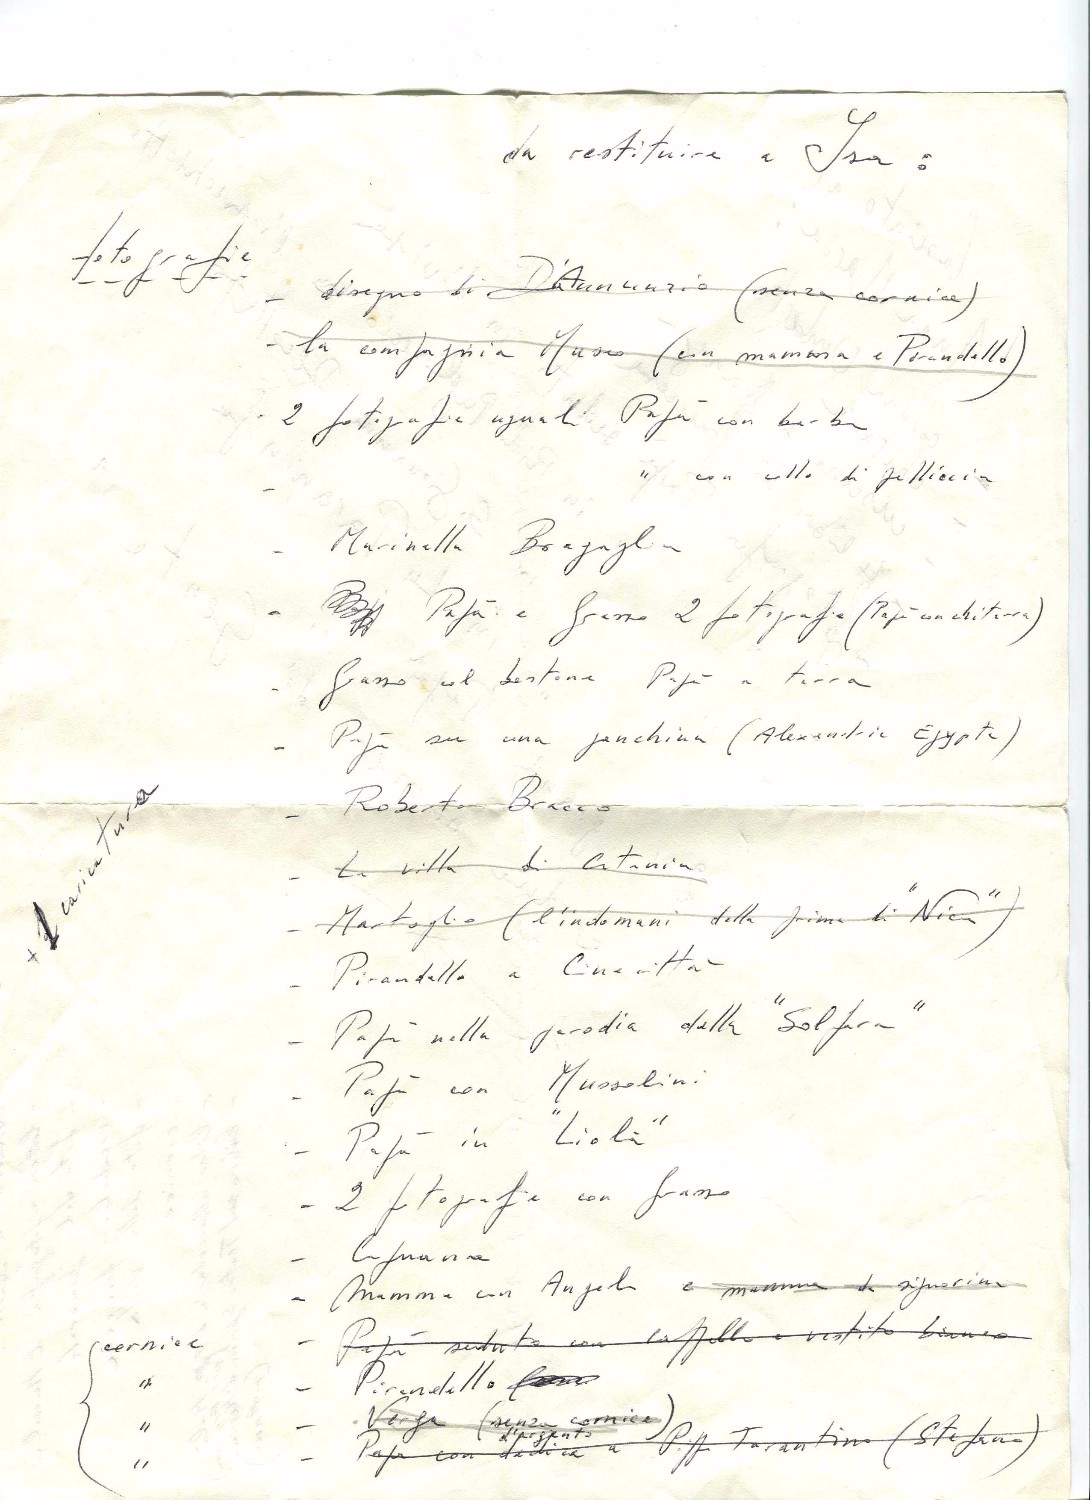 da restituire a Isa:
fotografie
- disegno di D'Annunzio (senza cornice)
- la compagnia Musco (con mamma e Pirandello)
- 2 fotografie uguali Papà con barba
- " con collo di pelliccia
- Marinella Bragaglia
- Papà e Grasso 2 fotografie (Papà con chitarra)
- Grasso col bastone Papà a terra
- Papà su una panchina (Alexandria Egypte)
- Roberto Bracco
- La villa di Catania
+ 1 caricatura
- Martoglio (l'indomani della prima di "Nica")
- Pirandello a Cinecittà
- Papà nella parodia della "Solfara"
- Papà con Mussolini
- Papà in "Liolà"
- 2 fotografie con Grasso
- Capuana
- Mamma con Angelo e mamma da signorina
cornice - Papà seduto con cappello e vestito bianco
" - Pirandello
" - Verga (senza cornice)
d'argento
" - Papà con dedica a Pippo Tarantino (Stefano)